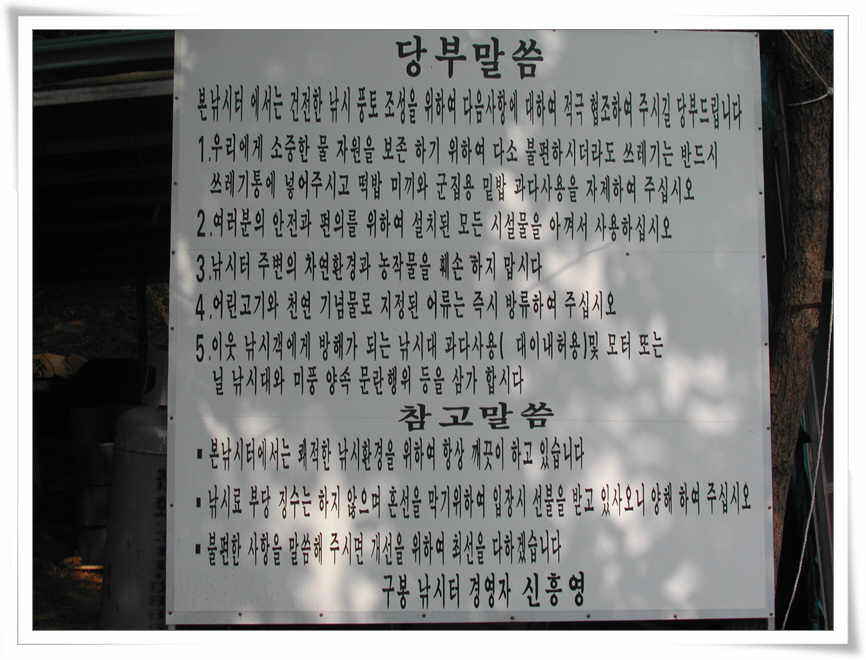 당부말씀
본낚시터 에서는 건전한 낚시 풍토 조성을 위하여 다음사항에 대하여 적극 협조하여 주시길 당부드립니다
1.우리에게 소중한 물 자원을 보존 하기 위하여 다소 불편하시더라도 쓰레기는 반드시
쓰레기통에 넣어주시고 떡밥 미끼와 군집용 밑밥 과다사용을 자제하여 주십시오
2.여러분의 안전과 편의를 위하여 설치된 모든 시설물을 아껴서 사용하십시오
3.낚시터 주변의 자연환경과 농작물을 훼손 하지 맙시다
4.어린고기와 천연 기념물로 지정된 어류는 즉시 방류하여 주십시오
5.이웃 낚시객에게 방해가 되는 낚시대 과다사용( 대이내허용)및 모터 또는
닐 낚시대와 미풍 양속 문란행위 등을 삼가 합시다
참고말씀
▪본낚시터에서는 쾌적한 낚시환경을 위하여 항상 깨끗이 하고 있습니다
▪낚시료 부당 징수는 하지 않으며 혼선을 막기위하여 입장시 선불을 받고 있사오니 양해 하여 주십시오
▪불편한 사항을 말씀해 주시면 개선을 위하여 최선을 다하겠습니다
구봉 낚시터 경영자 신흥영